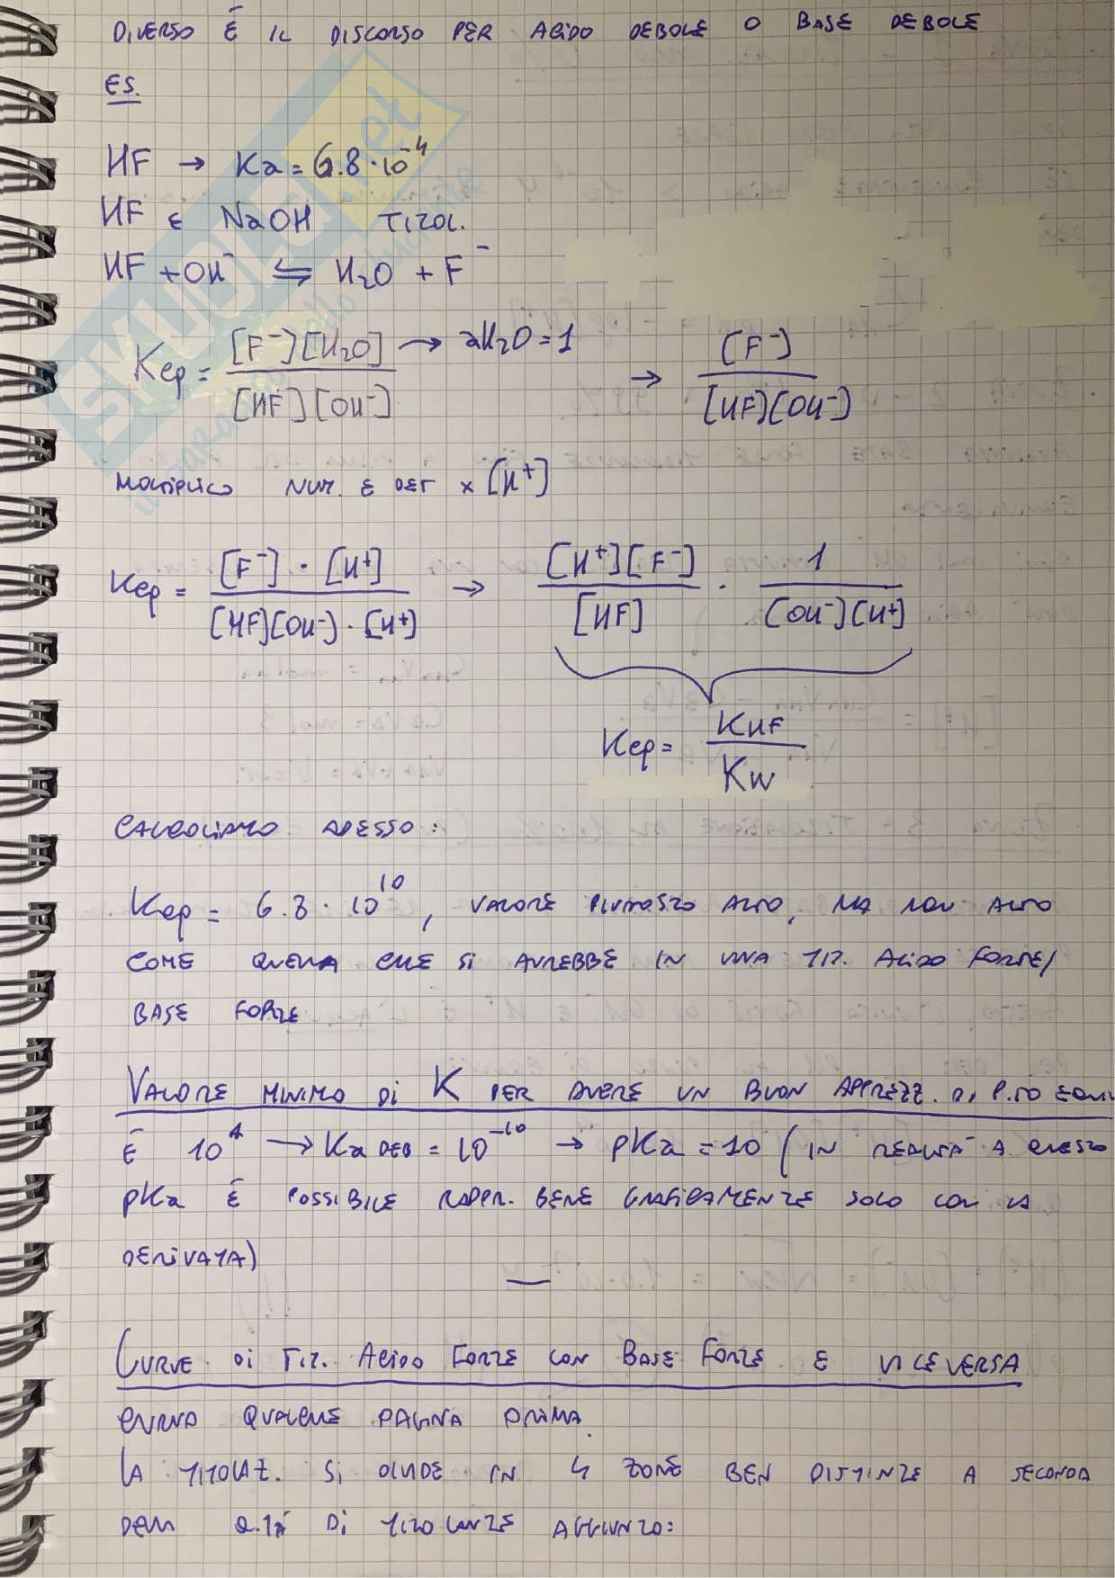 DIVERSO È IL DISCORSO PER ACIDO DEBOLE O BASE DEBOLE
ES.
HF → Ka = 6.8·10⁻⁴
HF E NaOH TITOL.
HF + OH⁻ ⇆ H₂O + F⁻
Keq = [F⁻][H₂O] / [HF][OH⁻] → aH₂O = 1 → [F⁻] / [HF][OH⁻]
MOLTIPLICO NUM. E DET × [H⁺]
Keq = [F⁻]·[H⁺] / [HF][OH⁻]·[H⁺] → [H⁺][F⁻] / [HF] · 1 / [OH⁻][H⁺]
Keq = KHF / Kw
CALCOLIAMO ADESSO:
Keq = 6.8·10¹⁰, VALORE PIUTTOSTO ALTO, MA NON ALTO
COME QUELLA CHE SI AVREBBE IN UNA TIT. ACIDO FORTE/
BASE FORTE
VALORE MINIMO DI K PER AVERE UN BUON APPREZZ. DI P.TO EQUIV
È 10⁴ → Ka DEB = 10⁻¹⁰ → pKa = 10 (IN REALTÀ A QUESTO
pKa È POSSIBILE RAPPR. BENE GRAFICAMENTE SOLO CON LA
DERIVATA)
CURVE DI TIT. ACIDO FORTE CON BASE FORTE E VICEVERSA
CURVA QUALCHE PAGINA PRIMA.
LA TITOLAZ. SI DIVIDE IN 4 ZONE BEN DISTINTE A SECONDA
DELLA Q.TÀ DI TITOLANTE AGGIUNTO: